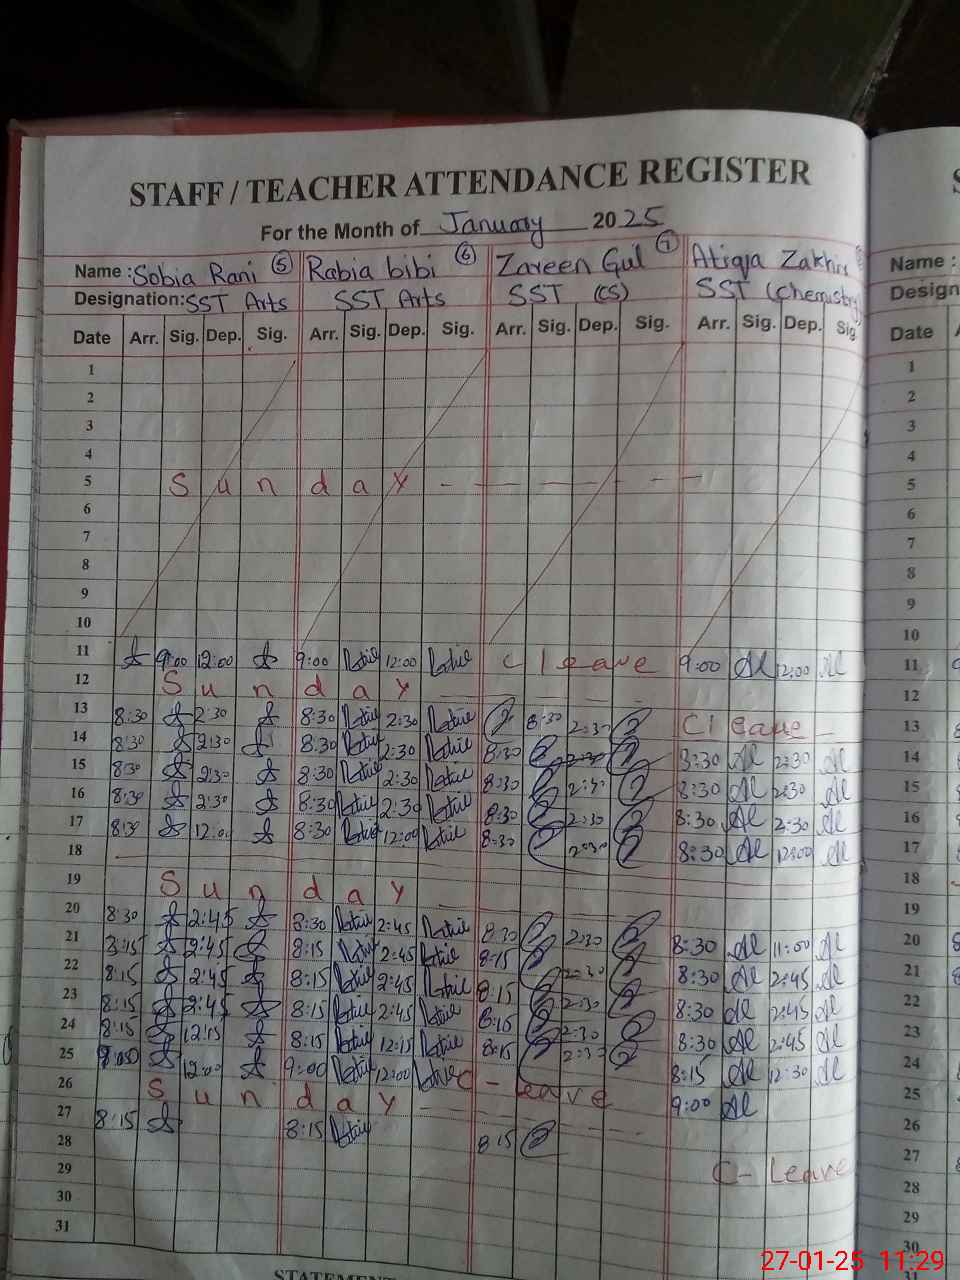 STAFF / TEACHER ATTENDANCE REGISTER
For the Month of January 2025
Name : Sobia Rani 5 Rabia bibi 6 Zareen Gul 7 Atiqa Zakhir Name :
Designation: SST Arts SST Arts SST (CS) SST (Chemistry) Design
Date Arr. Sig. Dep. Sig. Arr. Sig. Dep. Sig. Arr. Sig. Dep. Sig. Arr. Sig. Dep. Sig. Date
1 1
2 2
3 3
4 4
5 Sunday 5
6 6
7 7
8 8
9 9
10 10
11 9:00 12:00 9:00 12:00 C leave 9:00 12:00 11
12 Sunday 12
13 8:30 2:30 8:30 2:30 8:30 2:30 C leave 13
14 8:30 2:30 8:30 2:30 8:30 2:30 8:30 2:30 14
15 8:30 2:30 8:30 2:30 8:30 2:30 8:30 2:30 15
16 8:30 2:30 8:30 2:30 8:30 2:30 8:30 2:30 16
17 8:30 12:00 8:30 12:00 8:30 2:30 8:30 12:00 17
18 18
19 Sunday 19
20 8:30 2:45 8:30 2:45 8:30 2:30 8:30 11:00 20
21 8:15 2:45 8:15 2:45 8:15 8:30 2:45 21
22 8:15 2:45 8:15 2:45 8:15 2:30 8:30 2:45 22
23 8:15 2:45 8:15 2:45 8:15 2:30 8:30 2:45 23
24 8:15 12:15 8:15 12:15 8:15 2:30 8:15 12:30 24
25 9:00 12:00 9:00 12:00 C-leave 9:00 25
26 Sunday 26
27 8:15 8:15 8:15 C-Leave 27
28 28
29 29
30 30
31
STATEMENT
27-01-25 11:29